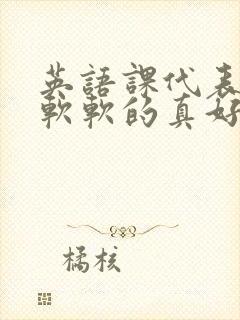 英語課代表
軟軟的真好
橘核